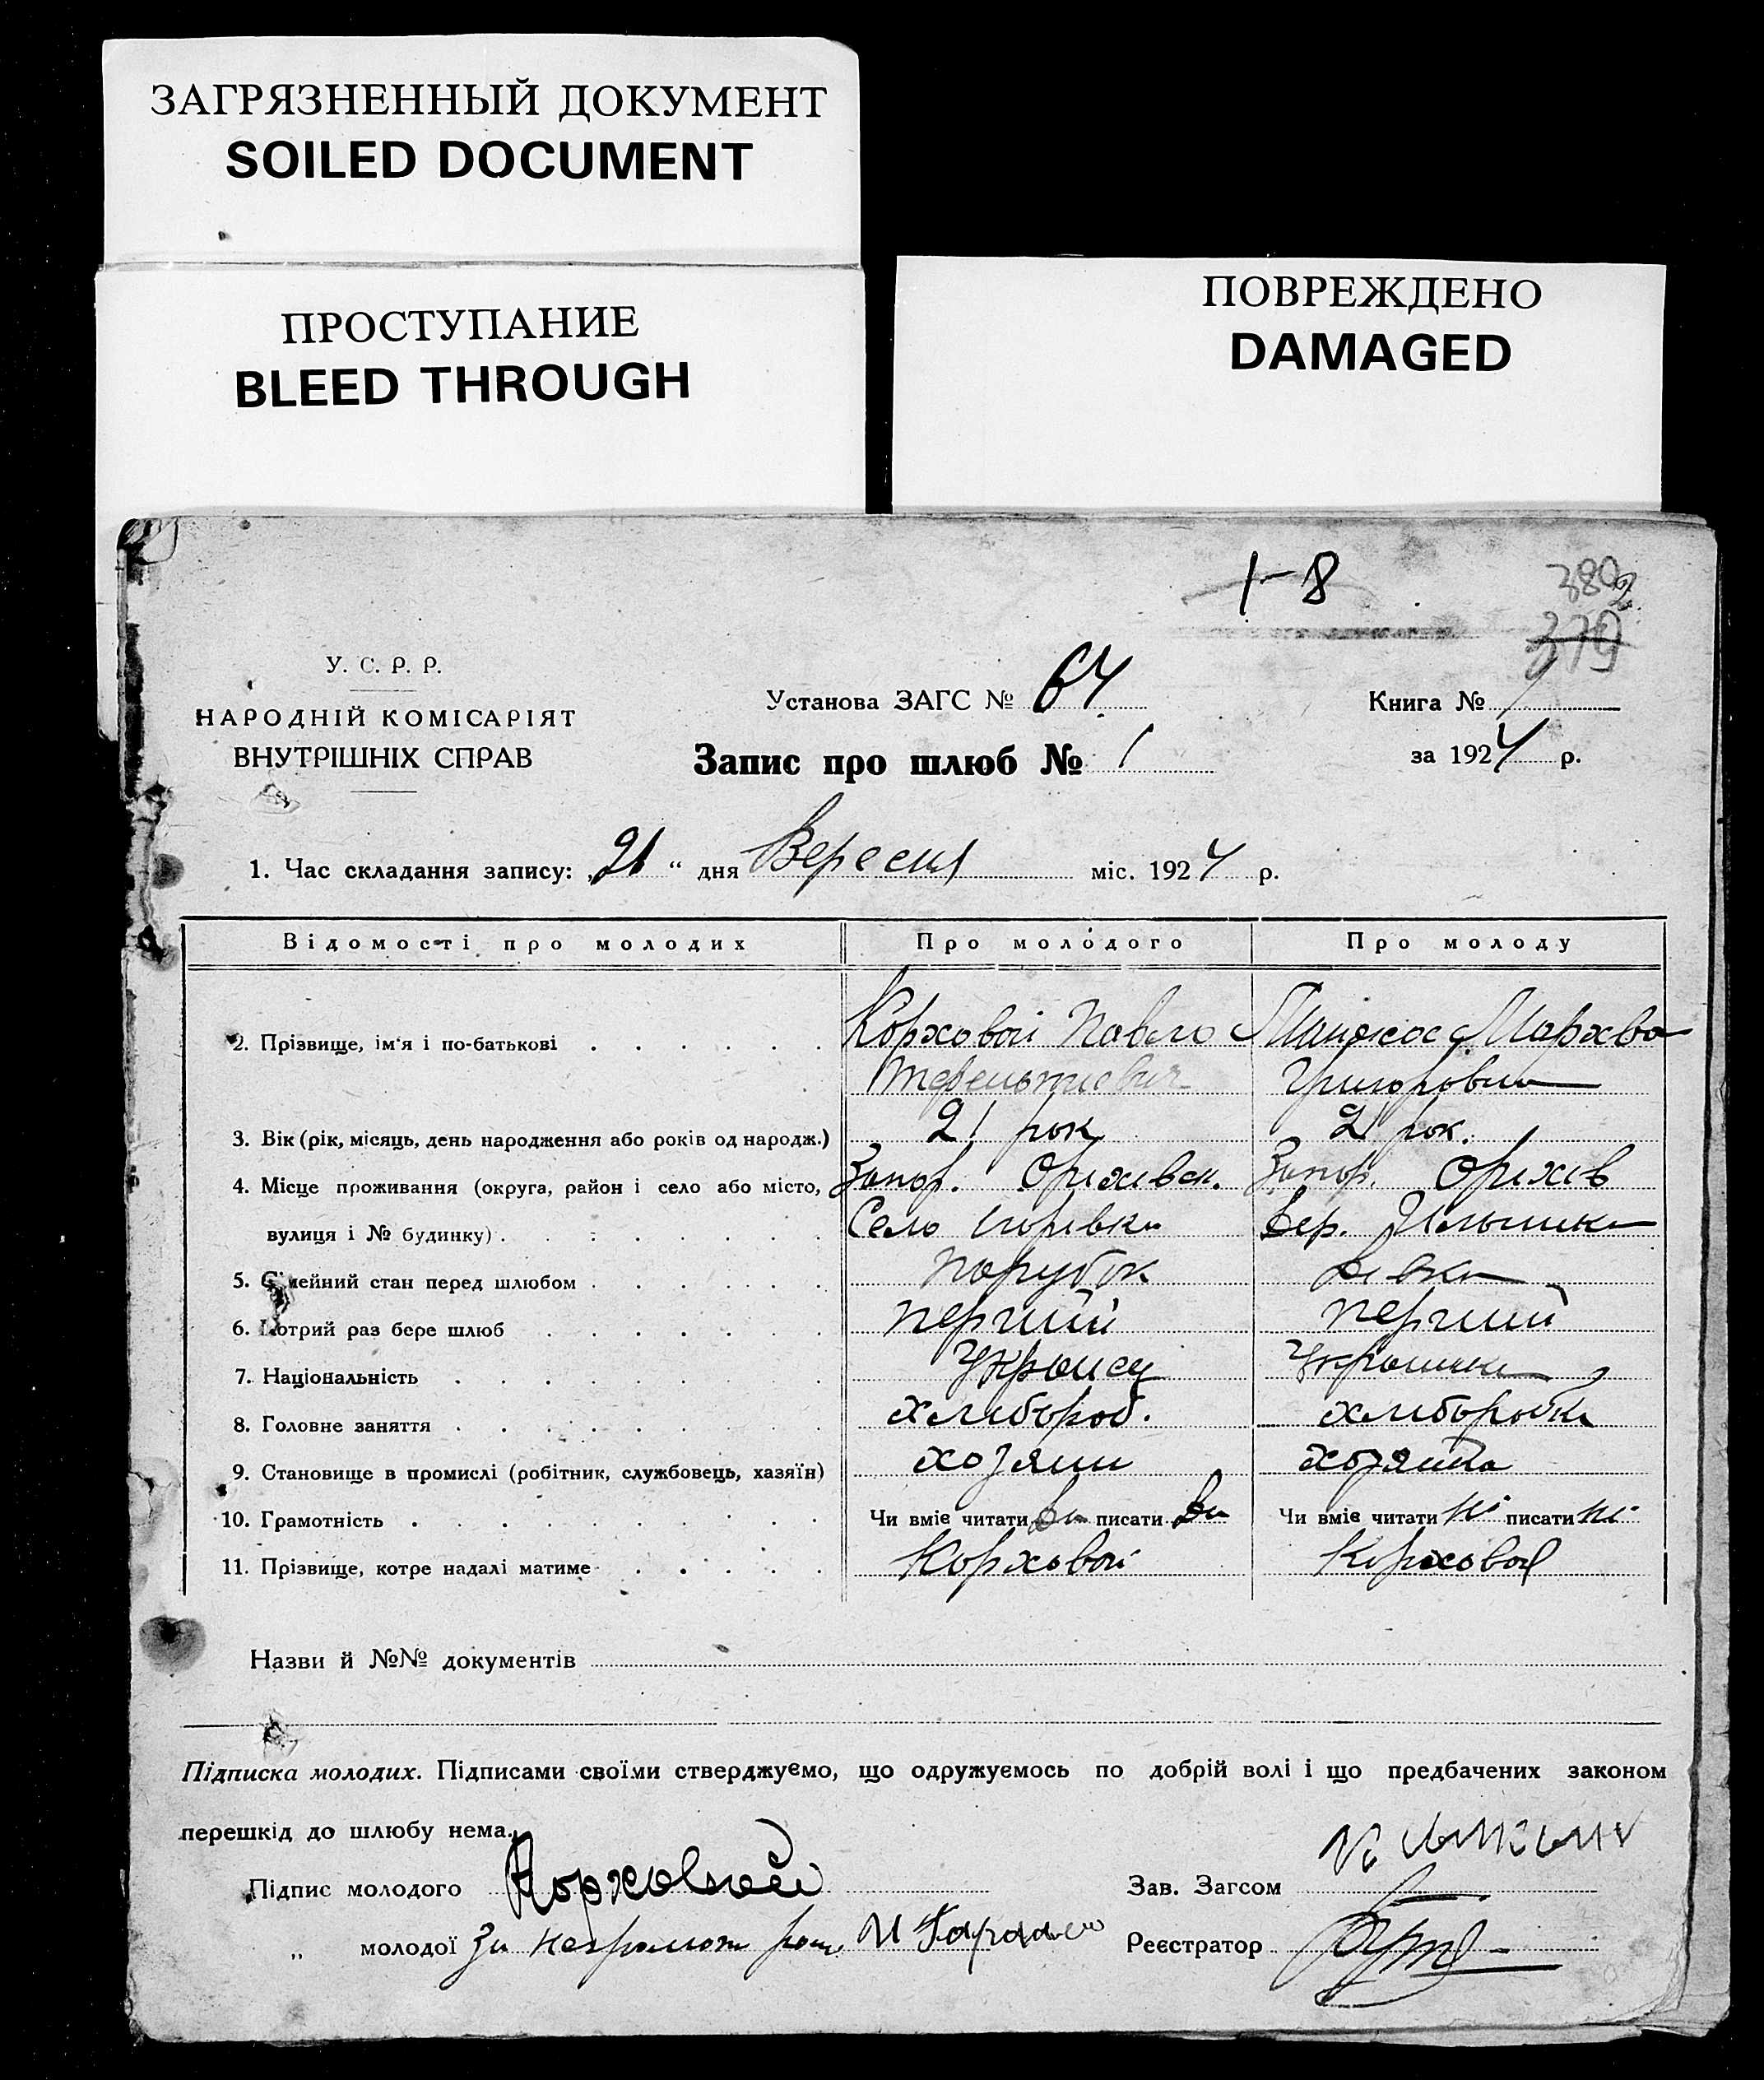 ЗАГРЯЗНЕННЫЙ ДОКУМЕНТ
SOILED DOCUMENT
ПРОСТУПАНИЕ
BLEED THROUGH
ПОВРЕЖДЕНО
DAMAGED
1-8
380 2
379
У. С. Р. Р.
НАРОДНІЙ КОМІСАРІЯТ
ВНУТРІШНІХ СПРАВ
Установа ЗАГС № 64
Книга № 1
Запис про шлюб № 1
за 1924 р.
1. Час складання запису: „21“ дня Вересня міс. 1924 р.
Відомості про молодих Про молодого Про молоду
2. Прізвище, ім'я і по-батькові Корховой Павло
Терентиевич Григоровна
3. Вік (рік, місяць, день народження або років од народж.) 21 рок 21 рок.
4. Місце проживання (округа, район і село або місто, Запор. Оріхівск. Запор. Оріхів
вулиця і № будинку) Село
5. Сімейний стан перед шлюбом Парубок Дівка
6. Котрий раз бере шлюб перший перший
7. Національність Украиец Украинка
8. Головне заняття хлибороб. хлиборобка
9. Становище в промислі (робітник, службовець, хазяїн) хозяин хозяйка
10. Грамотність Чи вміє читати да писати да Чи вміє читати ні писати ні
11. Прізвище, котре надалі матиме Корховой Корховой
Назви й №№ документів
Підписка молодих. Підписами своїми стверджуємо, що одружуємось по добрій волі і що предбачених законом
перешкід до шлюбу нема.
Підпис молодого Корховой Зав. Загсом
„ молодої За неграмотн Реєстратор